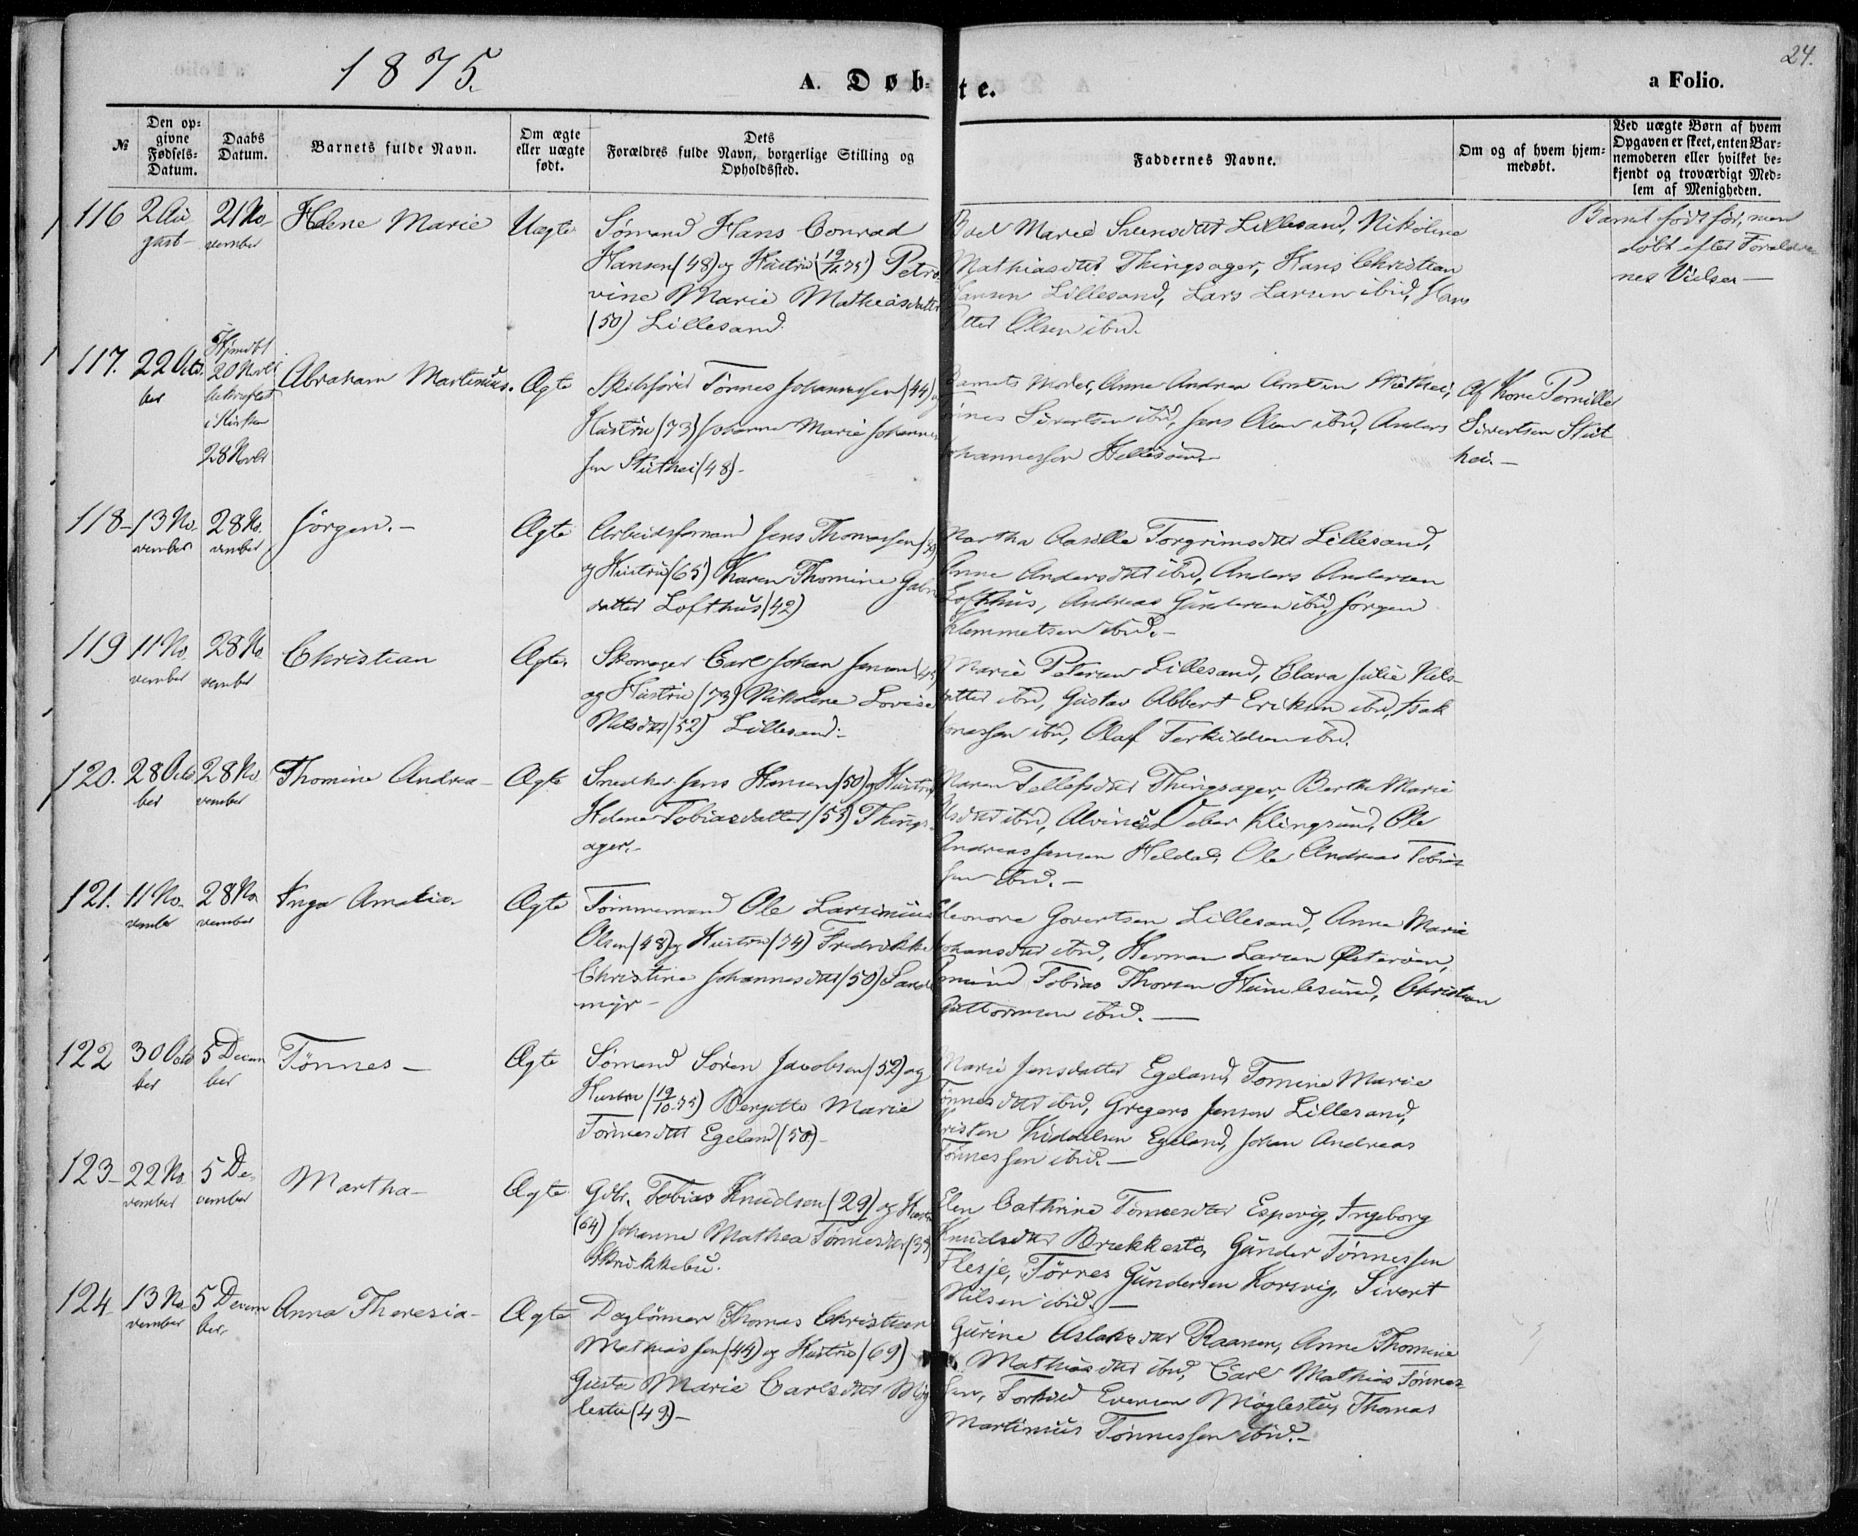 1875.
A. Døb=
te.
a Folio.
24.
№
Den op=
givne
Fødsels=
Datum.
Daabs
Datum.
Barnets fulde Navn.
Om ægte
eller uægte
født.
Dets
Forældres fulde Navn, borgerlige Stilling og
Opholdssted.
Faddernes Navne.
Om og af hvem hjem=
medøbt.
Ved uægte Børn af hvem
Opgaven er skeet, enten Bar=
nemoderen eller hvilket be=
kjendt og troværdigt Med=
lem af Menigheden.
116
2 Au
gust
21 No-
vember
Helene Marie
Uægte
Sømand Hans Conrad
Hansen (48) og Hustru (19/11 75) Petro
vine Marie Mathiasdatter
(50) Lillesand.
Marie Svensdttr Lillesand, Nikoline
Mathiasdttr Thingsager, Hans Christian
Hansen Lillesand, Lars Larsen ibid, Hans
Petter Olsen ibid.
Barnet født før, men
døbt efter Forældre
nes Vielse —
117.
22 Octo
ber
Hjmdbt
20 Novbr
bekræftet
i Kirken
28 Novbr
Abraham Martinius.
Ægte
Skibsfører Tønnes Johannessen (44) og
Hustru (73) Johanne Marie Johannes
sen (48) -
Barnets Moder, Anne Andrea
Tønnes Sivertsen ibid, Jens ibid, Anders
Johannessen
Af Kone Pernille
Sivertsen
hei. —
118-
13 No-
vember
28 No.
vember
Jørgen. -
Ægte
Arbeidsformand Jens Thomassen
og Hustru (65) Karen Thomine Gabri
datter Lofthus (42)
Martha Aasille Torgrimsdttr Lillesand,
Anne Andersdttr ibid, Anders Andersen
Lofthus, Andreas Gundersen ibid, Jørgen
Klemmetsen ibid. -
119
11 No.
vember
28 No
vember
Christian
Ægte.
Skomager Carl Johan Jensen
og Hustru (73) Nikoline Lovise
Nilsdttr (52) Lillesand -
Marie Petersen Lillesand, Clara Julie Nels-
datter ibid, Gustav Abbert Eriksen ibid, Isak
Jonassen ibid, Olaf Terkildsen ibid.
120.
28 Octo
ber
28 No
vember
Thomine Andrea -
Ægte
Snedker Jens Hansen (50) og Hustru
Helene Tobiasdatter (53) Things-
ager. -
Maren Tellefsdttr Thingsager, Berthe Marie
Olsdttr ibid, Klingsund, Ole
Andreas Jensen Heldal, Ole Andreas Tobias
sen ibid. -
121.
11 No-
vember
28 No
vember
Inga Amalia.
Ægte
Tømmermand Ole Larsinius
Olsen (48) og Hustru (74) Fredrikke
Christine Johannesdttr (50) Sand
myr -
Eleonore Govertsen Lillesand, Anne Marie
Johansdttr ibid, Herman Larsen Østerøen,
Amund Tobias Thorsen Humlesund, Christian
Guttormsen ibid. —
122
30 Octo
ber
5 Decem
ber
Tønnes —
Ægte
Sømand Søren Jacobsen (52) og
Hustru (19/10 75) Bergitte Marie
Tønnesdttr Egeland (50) -
Marie Jensdatter Egeland, Tomine Marie
Tønnesdttr ibid, Gregers Jensen Lillesand,
Kristen Kiddelsen Egeland, Johan Andreas
Tønnessen ibid. —
123-
22 No
vember
5 De-
cember
Martha -
Ægte
Gdbr. Tobias Knudsen (29) og Hustru
(64) Johanne Mathea Tønnesdttr
Skrukkebu.
Elen Cathrine Tønnesdttr Espevig, Ingeborg
Knudsdttr Brækkestø, Gunder Tønnessen
Flesje, Tørres Gundersen Korsvig, Sivert
Nilsen ibid. —
124
13 No
vember
5 Decem
ber
Anna Theresia -
Ægte
Daglønner Thomas Christian
Mathiassen (44) og Hustru (69)
Gusta Marie Carlsdttr Møg
lestu (49) -
Gurine Aslaksdttr Raanen, Anne Thomine
Mathiasdttr ibid, Carl Mathias Tønnes-
sen, Torkild Evensen Møglestu, Thomas
Martinius Tønnessen ibid. -